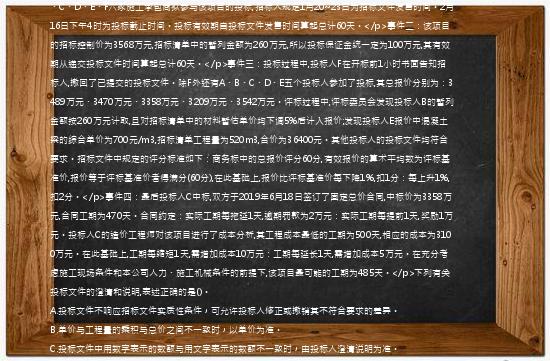 、C、D、E、F六家施工承包商拟参与该项目的投标,招标人规定1月20~23日为招标文件发售时间。2月
16日下午4时为投标截止时间。投标有效期自投标文件发售时间算起总计60天。</p>事件二：该项目
的招标控制价为3568万元,招标清单中的暂列金额为260万元,所以投标保证金统一定为100万元,其有效
期从递交投标文件时间算起总计60天。</p>事件三：投标过程中,投标人F在开标前1小时书面告知招
标人,撤回了已提交的投标文件。除F外还有A、B、C、D、E五个投标人参加了投标,其总报价分别为：3
489万元、3470万元、3358万元、3209万元、3542万元。评标过程中,评标委员会发现投标人B的暂列
金额按260万元计取,且对招标清单中的材料暂估单价均下调5%后计入报价;发现投标人E报价中混凝土
梁的综合单价为700元/m3,招标清单工程量为520m3,合价为36400元。其他投标人的投标文件均符合
要求。招标文件中规定的评分标准如下：商务标中的总报价评分60分,有效报价的算术平均数为评标基
准价,报价等于评标基准价者得满分(60分),在此基础上,报价比评标基准价每下降1%,扣1分；每上升1%,
扣2分。</p>事件四：最后投标人C中标,双方于2019年6月18日签订了固定总价合同,中标价为3358万
元,合同工期为470天。合同约定：实际工期每拖延1天,逾期罚款为2万元；实际工期每提前1天,奖励1万
元。投标人C的造价工程师对该项目进行了成本分析,其工程成本最低的工期为500天,相应的成本为310
0万元。在此基础上,工期每缩短1天,需增加成本10万元；工期每延长1天,需增加成本5万元。在充分考
虑施工现场条件和本公司人力、施工机械条件的前提下,该项目最可能的工期为485天。</p>下列有关
投标文件的澄清和说明,表述正确的是0。
A.投标文件不响应招标文件实质性条件，可允许投标人修正或撤销其不符合要求的差异。
B.单价与工程量的乘积与总价之间不一致时，以单价为准。
C.投标文件中用数字表示的数额与用文字表示的数额不一致时，由投标人澄清说明为准。